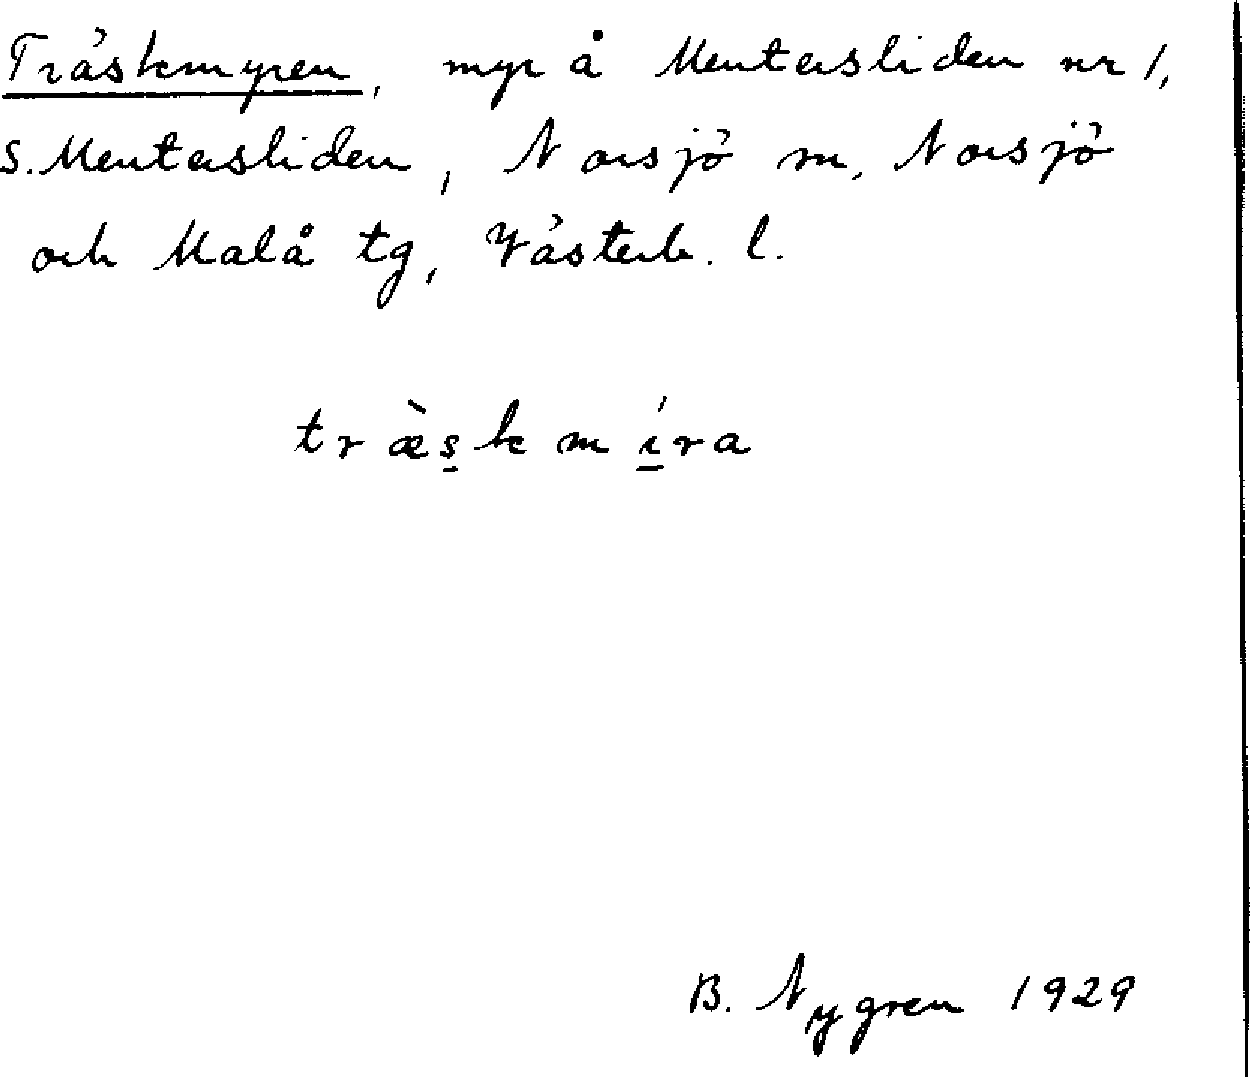 Träskmyren, myr å Mentersliden nr 1,
S. Mentersliden, Norsjö sn, Norsjö
och Malå tg, Västerb. l.
træ̀s̱kmí̱ra
B. Nygren 1929